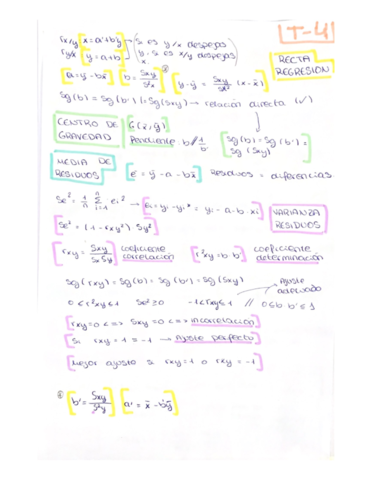 rx/y [x = a' + b'y] → (Si es y/x despejas
ry/x [y = a + b x] y si es x/y despejas)
T-4
RECTA REGRESIÓN
[a = ȳ - bx̄] [b = Sxy/Sx²] [y - ȳ = Sxy/Sx² (x - x̄)]
Sg(b) = Sg(b') = Sg(Sxy) → relación directa (✓)
CENTRO DE GRAVEDAD
G(x̄, ȳ)
Pendiente b // 1/b'
[Sg(b) = Sg(b') = Sg(Sxy)]
MEDIA DE RESIDUOS
[ē = ȳ - a - bx̄] Residuos = diferencias
Se² = 1/n Σ ei² → [ei = yi - yi* = yi - a - b·xi]
VARIANZA RESIDUOS
[Se² = (1 - rxy²) Sy²]
[rxy = Sxy/SxSy] coeficiente correlación [r²xy = b·b'] coeficiente determinación
Sg(rxy) = Sg(b) = Sg(b') = Sg(Sxy)
Ajuste adecuado
0 ≤ r²xy ≤ 1 Se² ≥ 0 -1 ≤ rxy ≤ 1 // 0 ≤ b·b' ≤ 1
[rxy = 0 <=> Sxy = 0 <=> incorrelación]
[Si rxy = 1 = -1 → Ajuste perfecto]
[Mejor ajuste si rxy = 1 o rxy = -1]
[b' = Sxy/S²y] [a' = x̄ - b'ȳ]